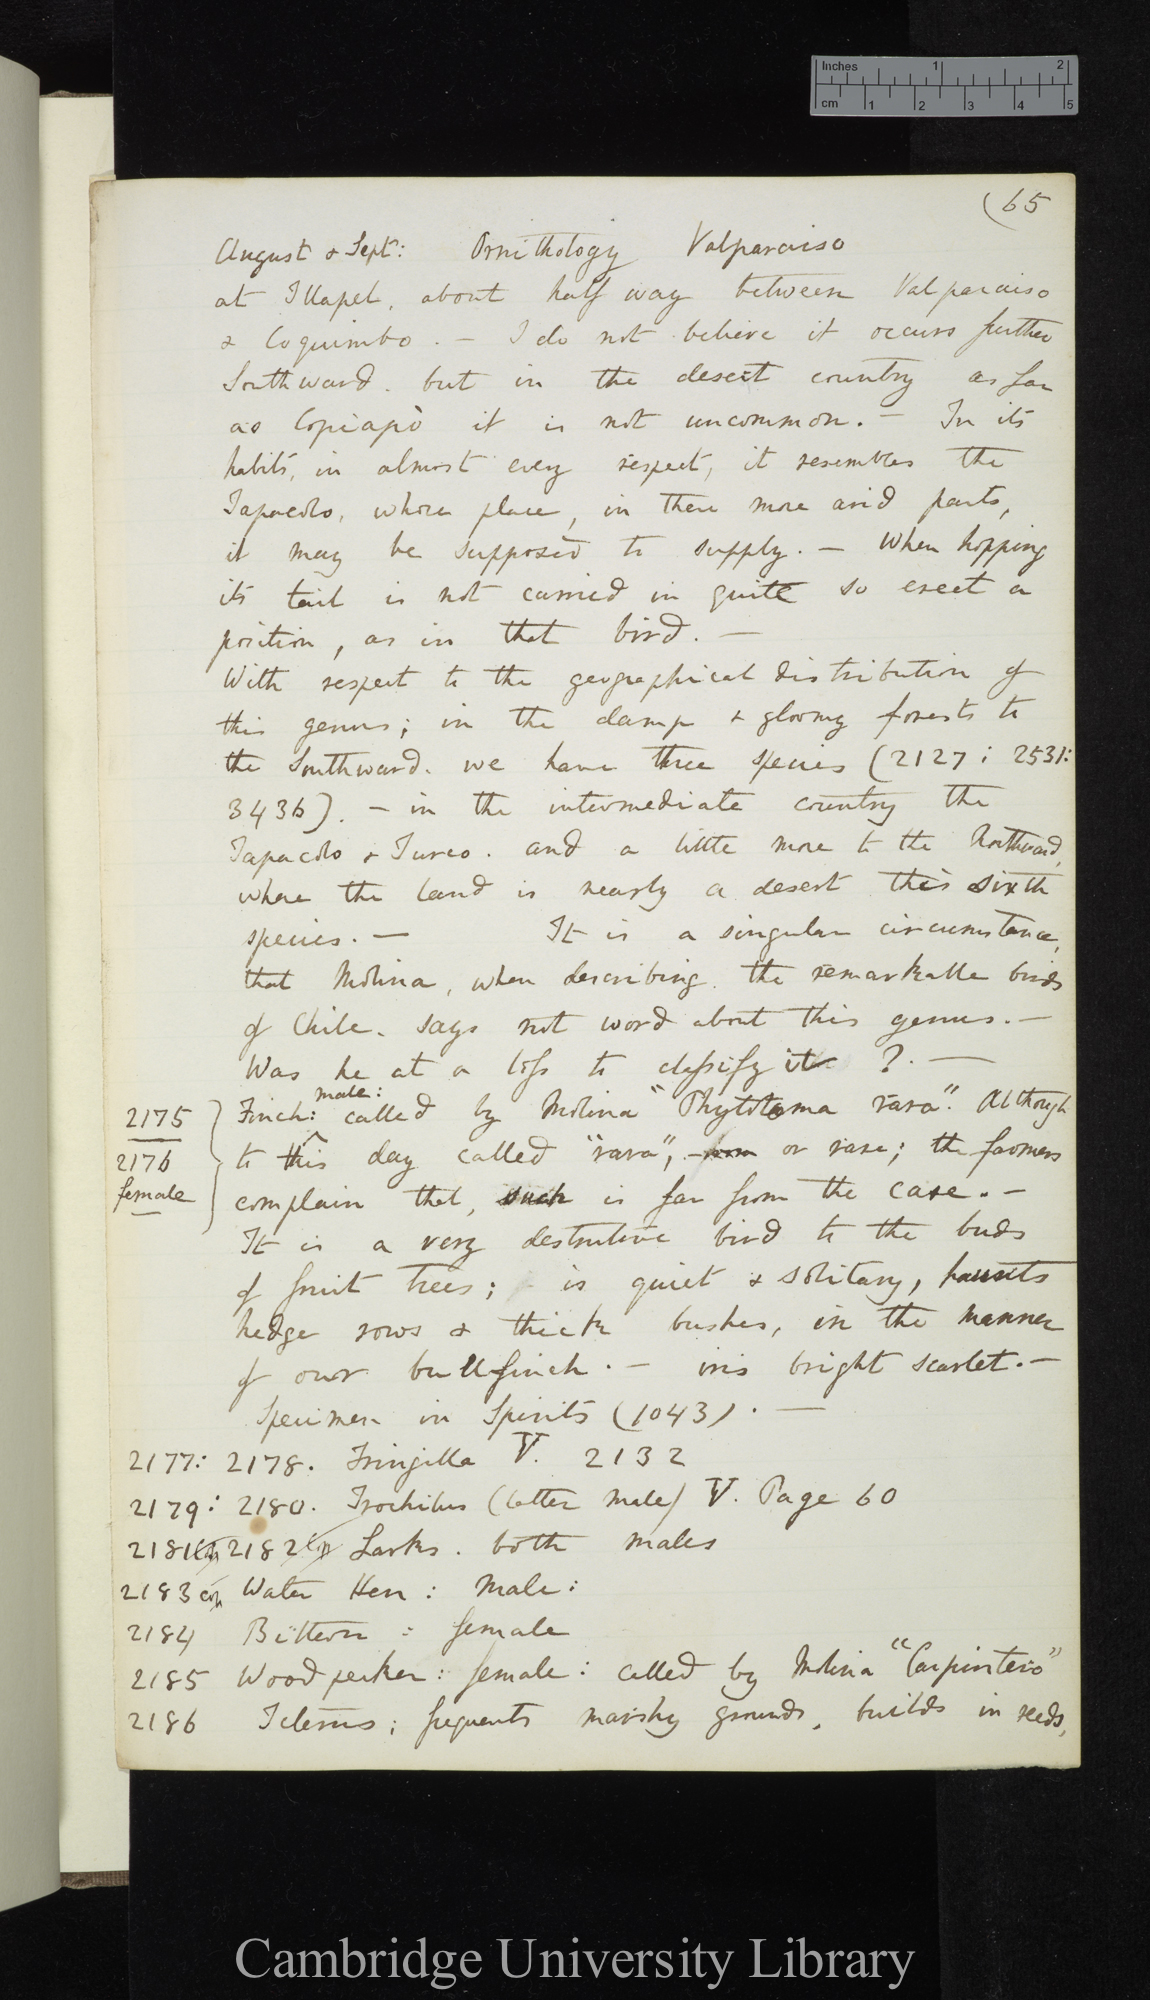 Inches 1 2
cm 1 2 3 4 5
(65
August & Sept: Ornithology Valparaiso
at Illapel, about half way between Valparaiso
& Coquimbo. — I do not believe it occurs further
Southward. but in the desert country as far
as Copiapò it is not uncommon. — In its
habits, in almost every respect, it resembles the
Tapacolo, whose place, in these more arid parts,
it may be supposed to supply. — When hopping
its tail is not carried in quite so erect a
position, as in that bird. —
With respect to the geographical distribution of
this genus; in the damp & gloomy forests to
the Southward. we have three species (2127: 2531:
3436). — in the intermediate country the
Tapacolo & Turco. and a little more to the Northward,
where the land is nearly a desert this sixth
species. — It is a singular circumstance,
that Molina, when describing. the remarkable birds
of Chile. says not word about this genus. —
Was he at a loss to classify it ?. —
male:
2175 Finch: called by Molina "Phytotoma rara". Although
2176 to this day called "rara", or rare; the farmers
female complain that, such is far from the case. —
It is a very destructive bird to the buds
of fruit trees; is quiet & solitary, haunts
hedge rows & thick bushes, in the manner
of our bullfinch. — iris bright scarlet. —
Specimen in Spirits (1043). —
2177: 2178. Fringilla V. 2132
2179: 2180. Trochilus (latter male) V. Page 60
2181 2182 Larks. both males
2183 Water Hen: Male:
2184 Bittern: female
2185 Wood pecker: female: called by Molina "Carpintero"
2186 Icterus; frequents marshy grounds, builds in reeds,
Cambridge University Library